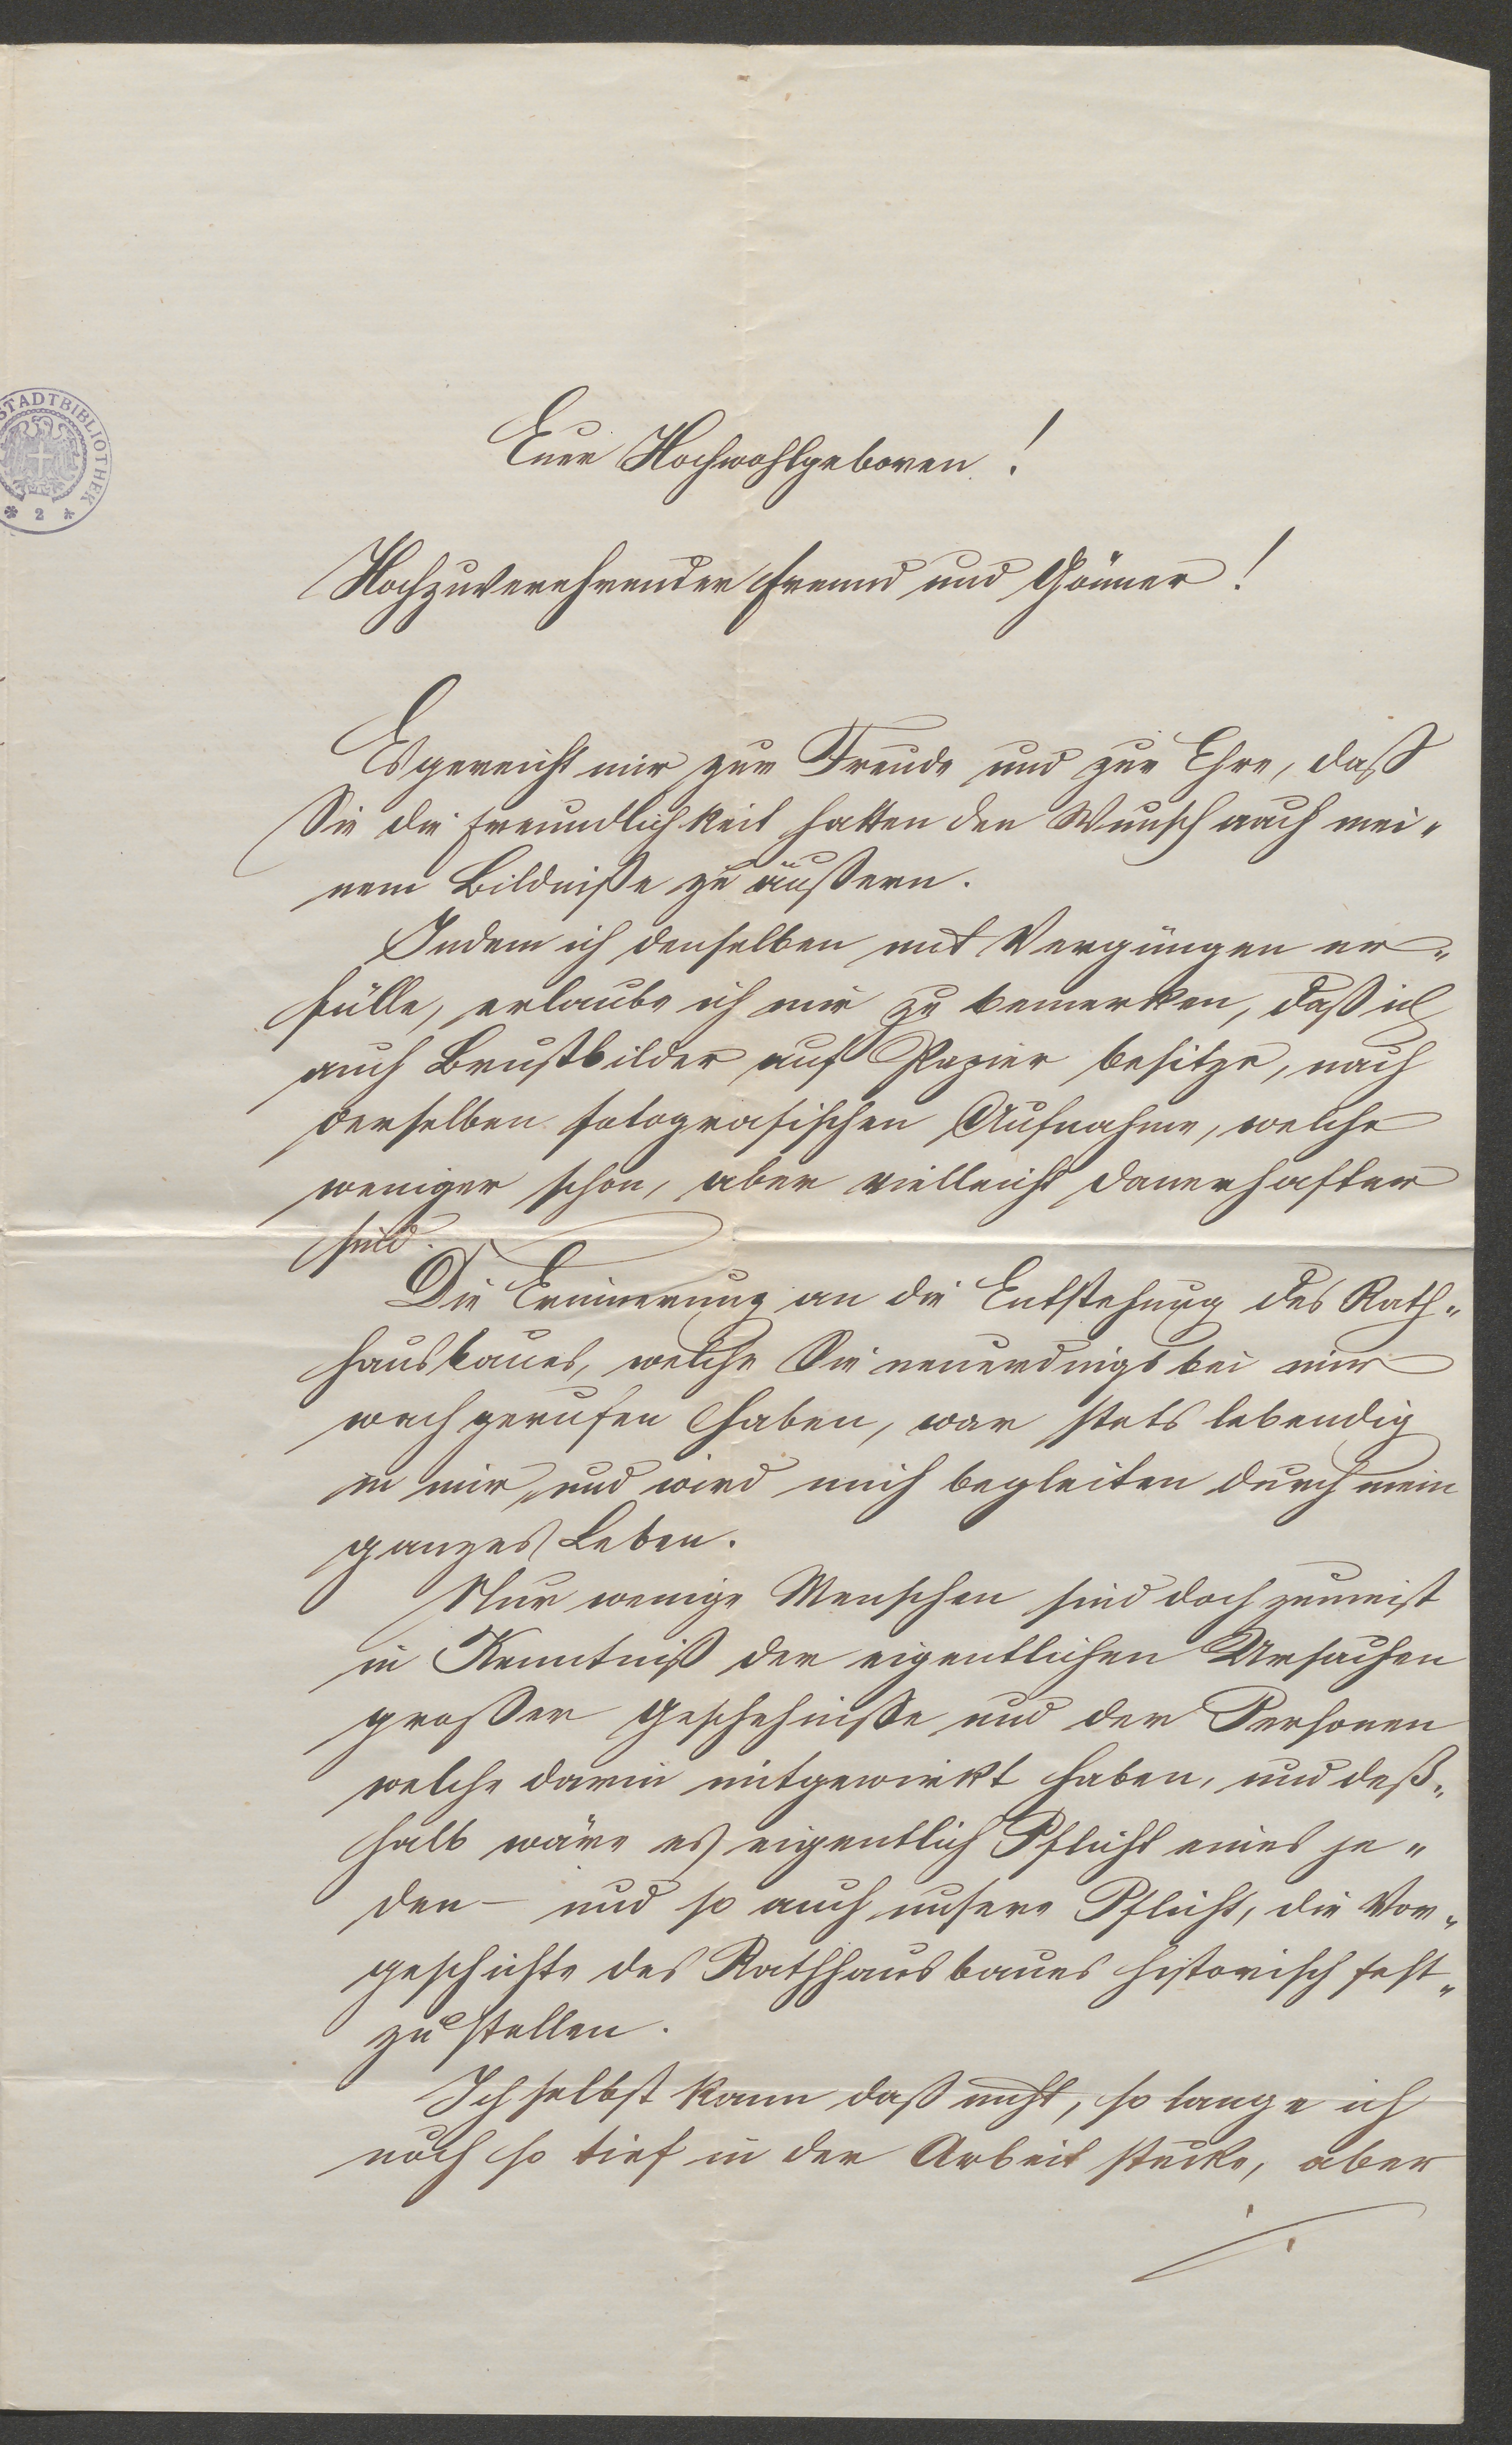 STADTBIBLIOTHEK
* 2 *
Euer Hochwohlgeboren!
Hochzuverehrender Freund und Gönner!
Es gereicht mir zur Freude und zur Ehre, daß
Sie die Freundlichkeit hatten den Wunsch nach mei„
nem Bildniße zu äußern.
Indem ich denselben mit Vergnügen er„
fülle, erlaube ich mir zu bemerken, daß ich
auch Brustbilder auf Papier besitze, nach
derselben fotografischen Aufnahme, welche
weniger schön, aber vielleicht dauerhafter
sind.
Die Erinnerung an die Entstehung des Rath„
hausbaues, welche Sie neuerdings bei mir
wachgerufen haben, war stets lebendig
in mir, und wird mich begleiten durch mein
ganzes Leben.
Nur wenige Menschen sind doch zumeist
in Kenntniß der eigentlichen Ursachen
großer Geschehniße und der Personen
welche darin mitgewirkt haben, und deß„
halb wäre es eigentlich Pflicht eines je„
den – und so auch unsere Pflicht, die Vor„
geschichte des Rathhausbaues historisch fest„
zustellen.
Ich selbst kann daß nicht, so lange ich
noch so tief in der Arbeit stecke, aber
./.